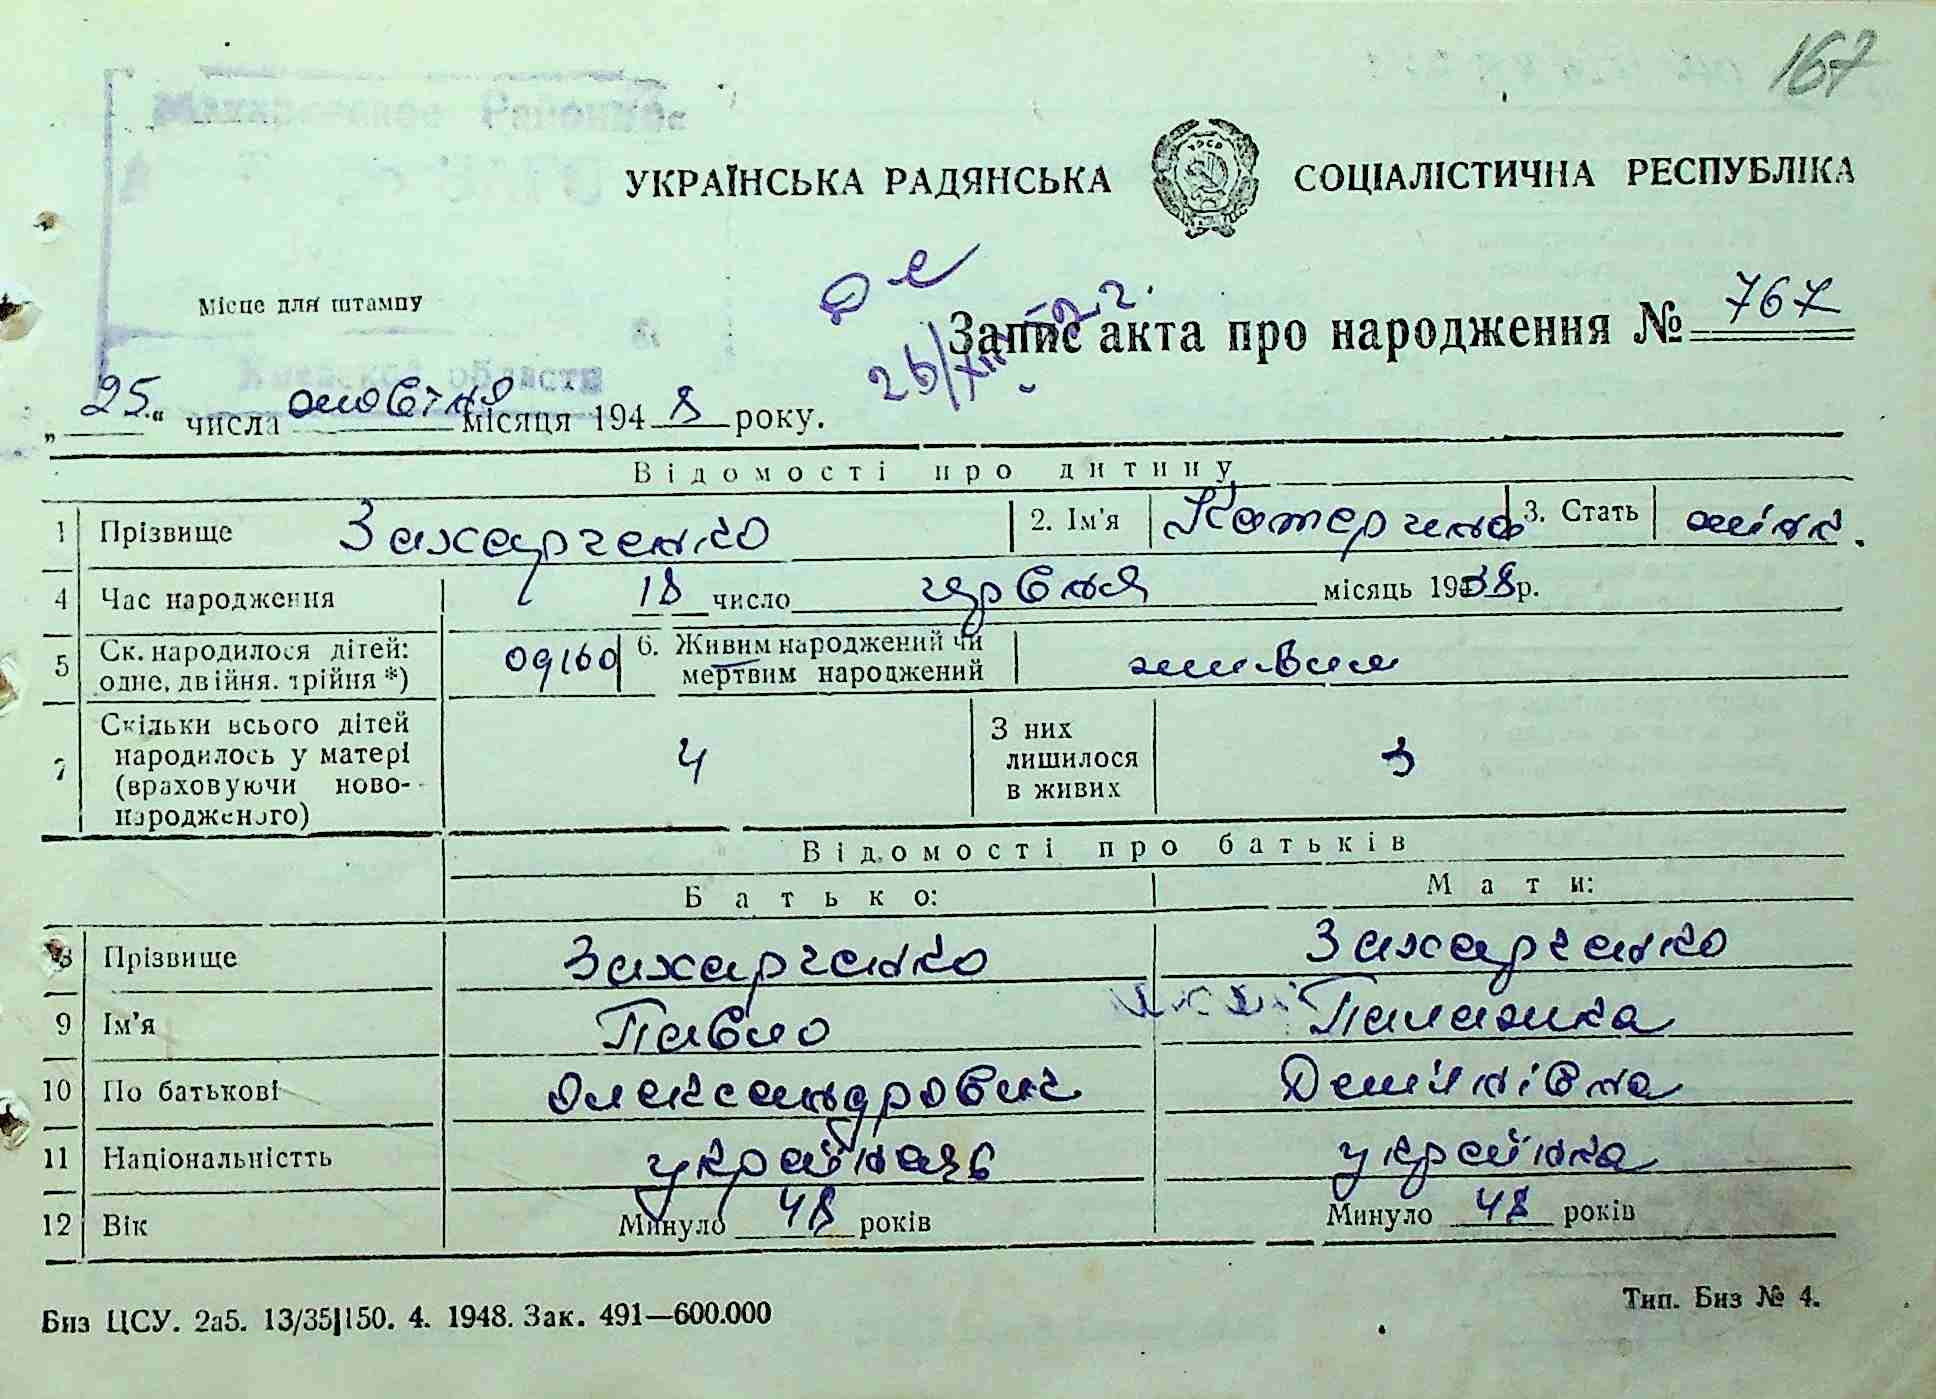 167
Макаровское Районное
УКРАЇНСЬКА РАДЯНСЬКА СОЦІАЛІСТИЧНА РЕСПУБЛІКА
УРСР
Місце для штампу
Запис акта про народження № 767
26/XII
Киевской области
„25“ числа жовтня місяця 1948 року.
Відомості про дитину
1 Прізвище Захарченко 2. Ім'я Катерина 3. Стать жіноч.
4 Час народження 18 число червня місяць 1938р.
5 Ск. народилося дітей: одне, двійня, трійня *) одно 6. Живим народжений чи мертвим народжений живим
7 Скільки всього дітей народилось у матері (враховуючи новонародженого) 4 З них лишилося в живих 3
Відомості про батьків
Батько: Мати:
8 Прізвище Захарченко Захарченко
9 Ім'я Павло Палажка
10 По батькові Олександрович Дем'янівна
11 Національністть українець українка
12 Вік Минуло 48 років Минуло 48 років
Биз ЦСУ. 2а5. 13/35|150. 4. 1948. Зак. 491—600.000 Тип. Биз № 4.